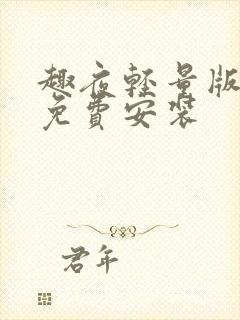 趣夜轻量版
免費安裝
君年